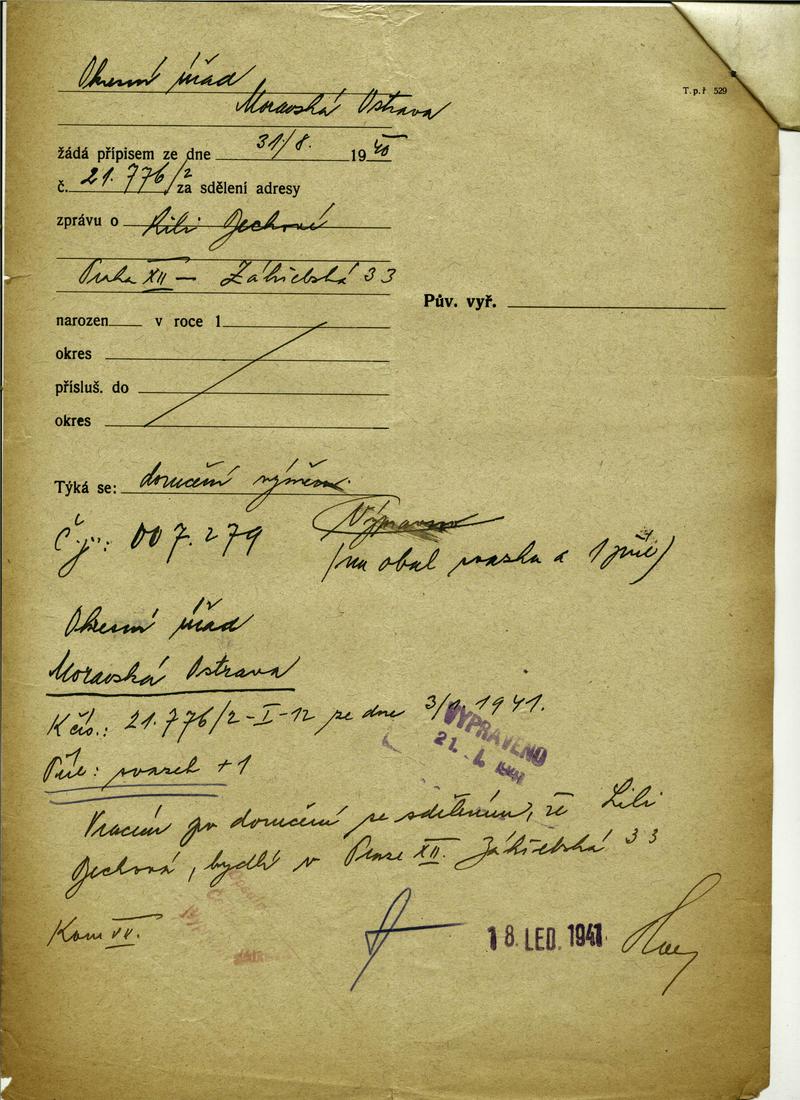 T. p. ř 529
Okresní úřad
Moravská Ostrava
žádá přípisem ze dne 31/8. 1940
č. 21.776/2 za sdělení adresy
zprávu o Lili Dechové
Praha XII – Záhřebská 33
Pův. vyř.
narozen v roce 1
okres
přísluš. do
okres
Týká se: doručení výměru.
Č.j.: 007.279
(na obal svazku a 1 příl)
Okresní úřad
Moravská Ostrava
K čís.: 21.776/2-I-12 ze dne 3/1. 1941.
VYPRAVENO
21. I. 1941
Příl: svazek +1
Vracím po doručení se sdělením, že Lili
Dechová, bydlí v Praze XII. Záhřebská 33
Kom VII.
18. LED. 1941